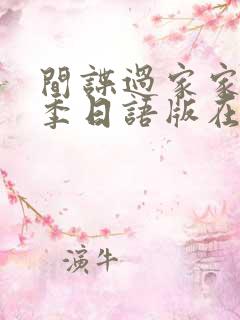 間諜過家家
季日語版在
演牛